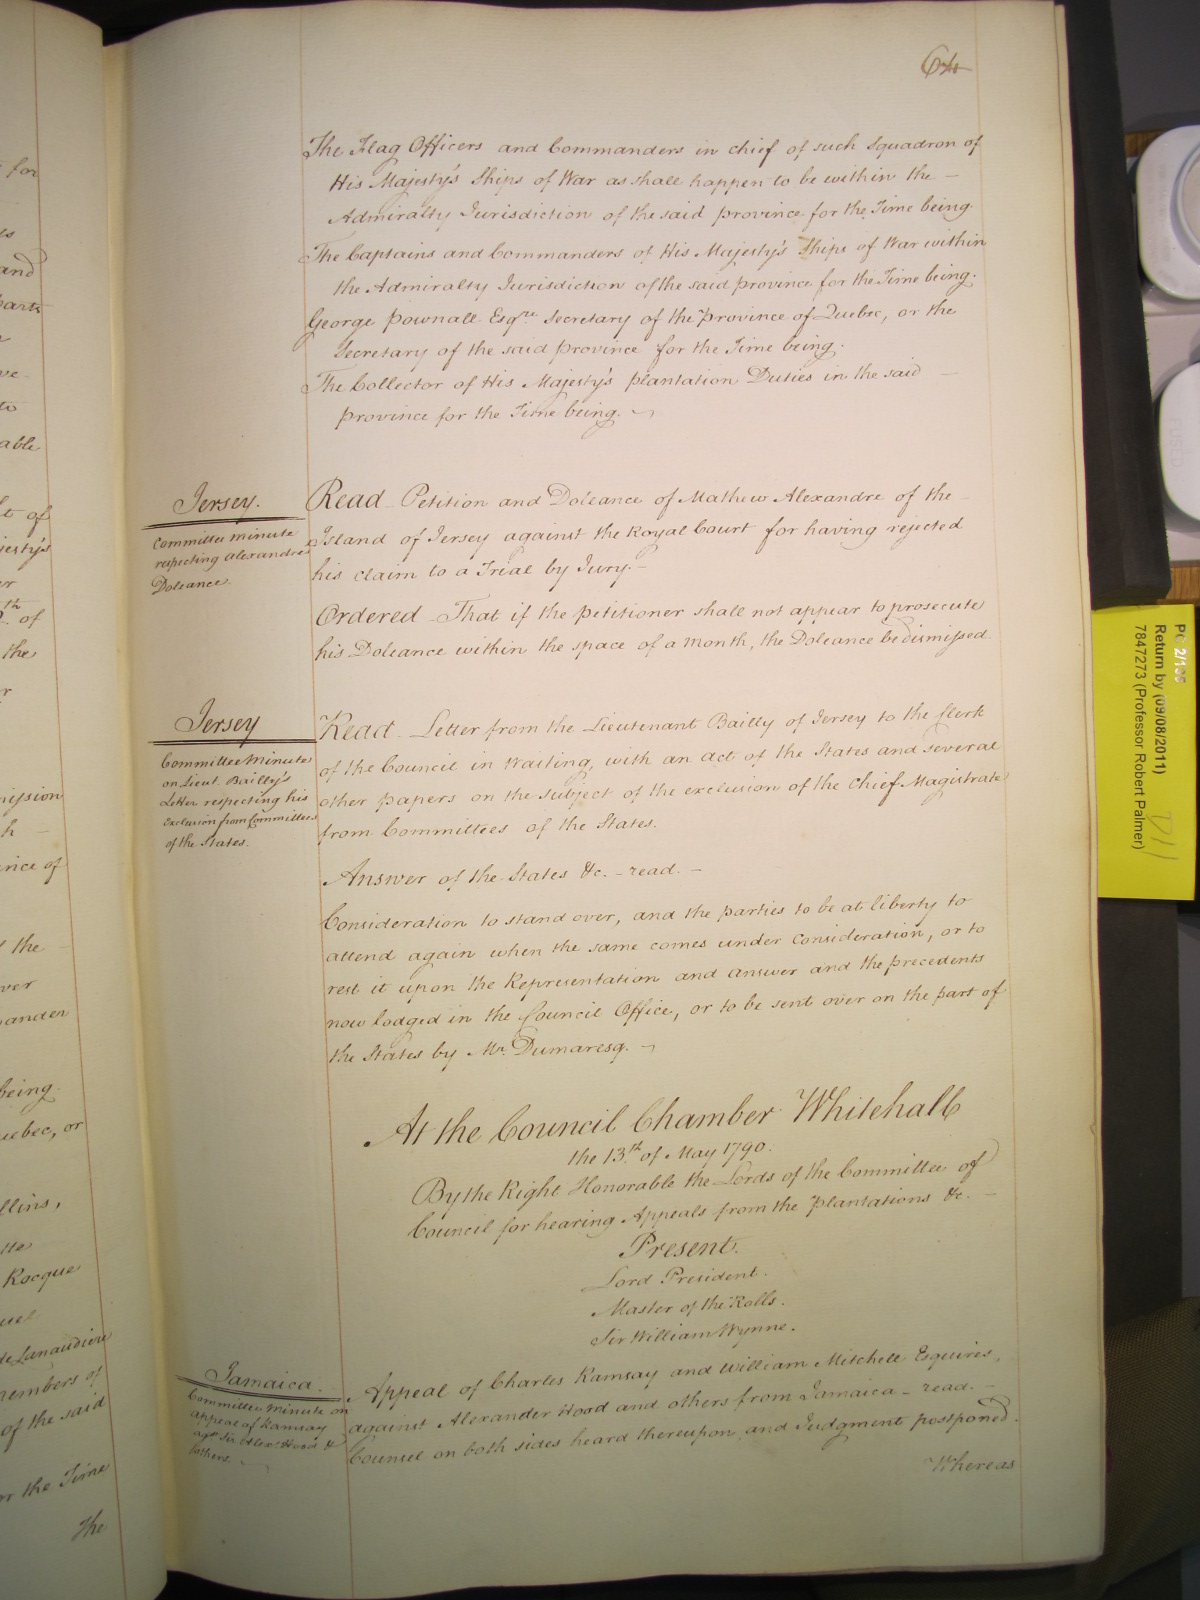 64
The Flag Officers and Commanders in chief of such Squadron of
His Majesty's Ships of War as shall happen to be within the –
Admiralty Jurisdiction of the said province for the Time being.
The Captains and Commanders of His Majesty's Ships of War within
the Admiralty Jurisdiction of the said province for the Time being.
George Pownall Esqre Secretary of the Province of Quebec, or the
Secretary of the said province for the Time being.
The Collector of His Majesty's plantation Duties in the said –
province for the Time being.
Jersey.
Committee Minute
respecting Alexandre
Doleance.
Read – Petition and Doleance of Mathew Alexandre of the –
Island of Jersey against the Royal Court for having rejected
his claim to a Trial by Jury. –
Ordered – That if the petitioner shall not appear to prosecute
his Doleance within the space of a Month, the Doleance be dismissed
Jersey
Committee Minute
on Lieut. Bailly's
Letter respecting his
exclusion from Committees
of the States.
Read – Letter from the Lieutenant Bailly of Jersey to the Clerk
of the Council in Waiting, with an act of the States and several
other papers on the subject of the exclusion of the Chief Magistrate
from Committees of the States.
Answer of the States &c. – read. –
Consideration to stand over, and the parties to be at liberty to
attend again when the same comes under Consideration, or to
rest it upon the Representation and answer and the precedents
now lodged in the Council Office, or to be sent over on the part of
the States by Mr. Dumaresq. –
At the Council Chamber Whitehall
the 13th of May 1790.
By the Right Honorable the Lords of the Committee of
Council for hearing Appeals from the plantations &c. –
Present.
Lord President.
Master of the Rolls.
Sir William Wynne.
Jamaica.
Committee Minute on
appeal of Ramsay
agt Sir Alexr Hood &
others.
Appeal of Charles Ramsay and William Mitchell Esquires,
against Alexander Hood and others from Jamaica – read. –
Counsel on both sides heard thereupon and Judgment postponed.
Whereas
for
and
parts
to
able
of
jesty's
th of
the
ission
nce of
the
ver
ander
being.
uebec, or
llins,
Rocque
de Lanaudiere
members of
of the said
or the Time
The
PC 2/135
Return by (09/08/2011)
7847273 (Professor Robert Palmer)
D11